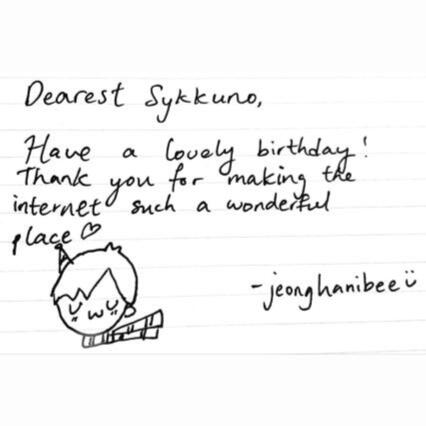 Dearest Sykkuno,
Have a lovely birthday!
Thank you for making the
internet such a wonderful
place ♡
-jeonghanibee ü